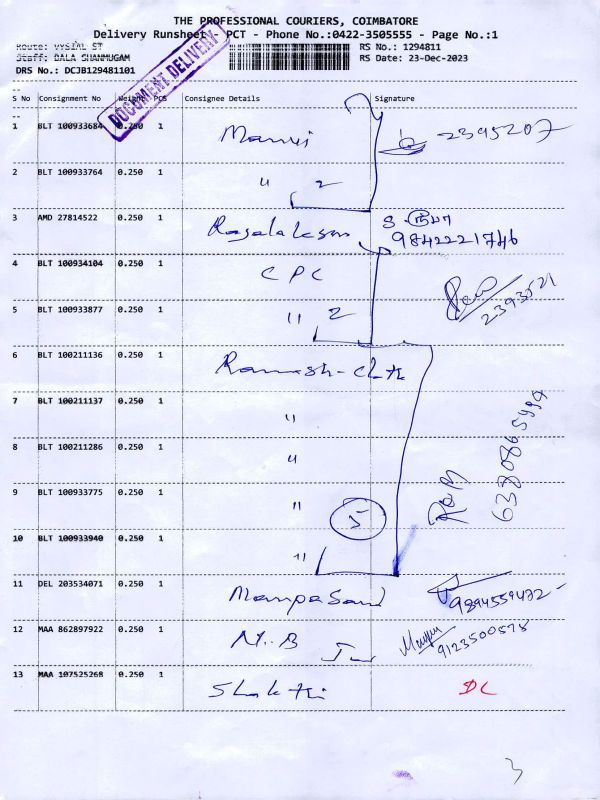 THE PROFESSIONAL COURIERS, COIMBATORE
Delivery Runsheet - PCT - Phone No.:0422-3505555 - Page No.:1
Route: VYSIAL ST
Staff: BALA SHANMUGAM
DRS No.: DCJB129481101
RS No.: 1294811
RS Date: 23-Dec-2023
DOCUMENT DELIVERY
S No Consignment No Weight PCS Consignee Details Signature
1 BLT 100933684 0.250 1 2395207
2 BLT 100933764 0.250 1 " 2
3 AMD 27814522 0.250 1 9842221746
4 BLT 100934104 0.250 1 CPC
5 BLT 100933877 0.250 1 " 2
6 BLT 100211136 0.250 1 Ramesh-
7 BLT 100211137 0.250 1 "
8 BLT 100211286 0.250 1 "
9 BLT 100933775 0.250 1 " 5
10 BLT 100933940 0.250 1 "
11 DEL 203534071 0.250 1
12 MAA 862897922 0.250 1
13 MAA 107525268 0.250 1 Shakthi DL
3